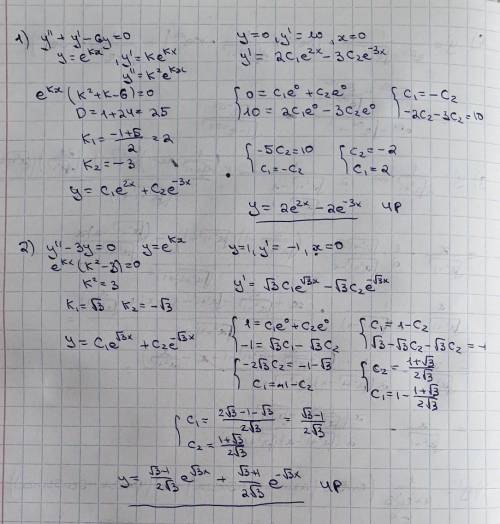 1) y'' + y' - 6y = 0
y = e^{kx}, y' = ke^{kx}
y'' = k²e^{kx}
e^{kx}(k² + k - 6) = 0
D = 1 + 24 = 25
k₁ = (-1+5)/2 = 2
k₂ = -3
y = c₁e^{2x} + c₂e^{-3x}
y = 0, y' = 10, x = 0
y' = 2c₁e^{2x} - 3c₂e^{-3x}
{ 0 = c₁e⁰ + c₂e⁰ { c₁ = -c₂
10 = 2c₁e⁰ - 3c₂e⁰ -2c₂ - 3c₂ = 10
{ -5c₂ = 10 { c₂ = -2
c₁ = -c₂ c₁ = 2
y = 2e^{2x} - 2e^{-3x} ЧР
2) y'' - 3y = 0 y = e^{kx}
e^{kx}(k² - 3) = 0
k² = 3
k₁ = √3 k₂ = -√3
y = c₁e^{√3x} + c₂e^{-√3x}
y = 1, y' = -1, x = 0
y' = √3c₁e^{√3x} - √3c₂e^{-√3x}
{ 1 = c₁e⁰ + c₂e⁰ { c₁ = 1 - c₂
-1 = √3c₁ - √3c₂ √3 - √3c₂ - √3c₂ = -1
{ -2√3c₂ = -1 - √3 { c₂ = (1+√3)/(2√3)
c₁ = 1 - c₂ c₁ = 1 - (1+√3)/(2√3)
{ c₁ = (2√3 - 1 - √3)/(2√3) = (√3-1)/(2√3)
c₂ = (1+√3)/(2√3)
y = (√3-1)/(2√3) e^{√3x} + (√3+1)/(2√3) e^{-√3x} ЧР